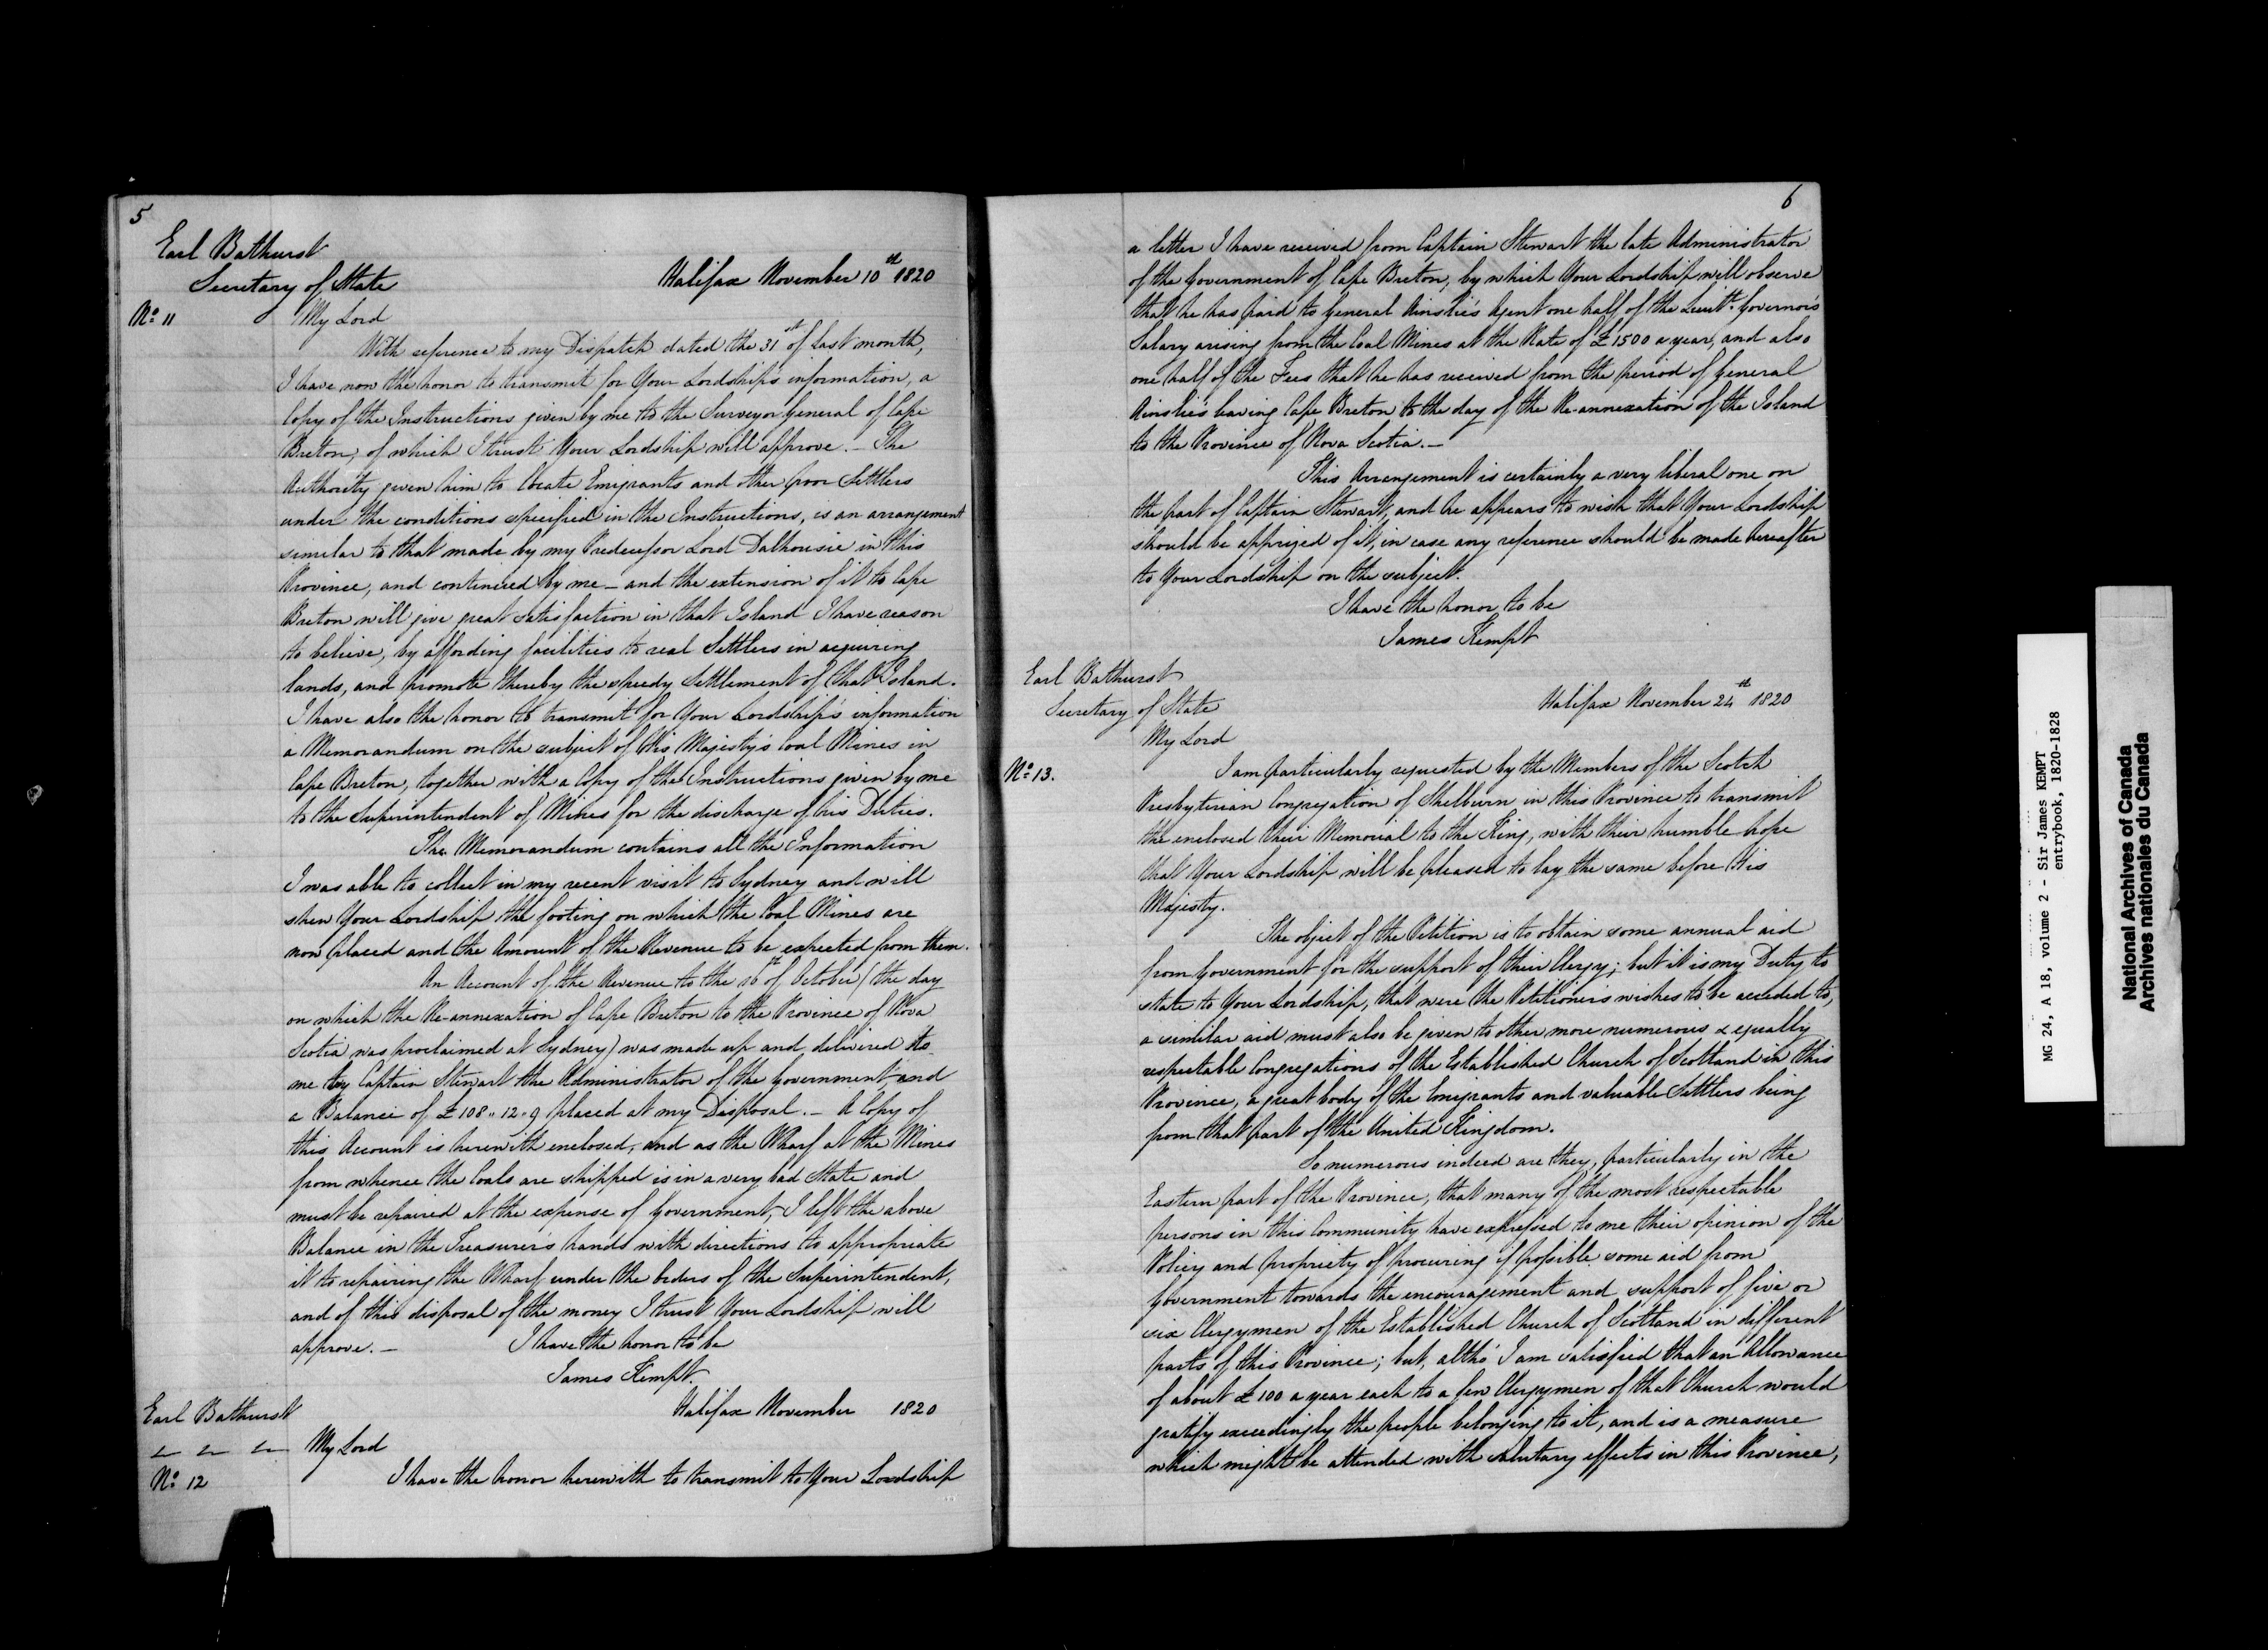 5
Earl Bathurst
Secretary of State
Halifax November 10th 1820
No. 11
My Lord
With reference to my Dispatch dated the 31st of last month,
I have now the honor to transmit for Your Lordship's information, a
Copy of the Instructions given by me to the Surveyor General of Cape
Breton, of which I trust Your Lordship will approve. - The
Authority given him to locate Emigrants and other poor Settlers
under the conditions specified in the Instructions, is an arrangement
similar to that made by my Predecessor Lord Dalhousie in this
Province, and continued by me - and the extension of it to Cape
Breton will give great satisfaction in that Island I have reason
to believe, by affording facilities to real Settlers in acquiring
lands, and promote thereby the speedy Settlement of that Island.
I have also the honor to transmit for Your Lordship's information
a Memorandum on the subject of His Majesty's Coal Mines in
Cape Breton, together with a Copy of the Instructions given by me
to the Superintendent of Mines for the discharge of his Duties.
The Memorandum contains all the Information
I was able to collect in my recent visit to Sydney and will
shew Your Lordship the footing on which the Coal Mines are
now placed and the Amount of the Revenue to be expected from them.
An Account of the Revenue to the 16th of October (the day
on which the Re-annexation of Cape Breton to the Province of Nova
Scotia was proclaimed at Sydney) was made up and delivered to
me by Captain Stewart the Administrator of the Government, and
a Balance of £108..12..9 placed at my Disposal. - A Copy of
this Account is herewith enclosed, and as the Wharf at the Mines
from whence the Coals are shipped is in a very bad State and
must be repaired at the expense of Government, I left the above
Balance in the Treasurer's hands with directions to appropriate
it to repairing the Wharf under the orders of the Superintendent,
and of this disposal of the money I trust Your Lordship will
approve. -
I have the honor to be
James Kempt.
Earl Bathurst
Halifax November 1820
My Lord
No. 12
I have the honor herewith to transmit to Your Lordship
6
a letter I have received from Captain Stewart the late Administrator
of the Government of Cape Breton, by which Your Lordship will observe
that he has paid to General Ainslie's Agent one half of the Lieutt. Governor's
Salary arising from the Coal Mines at the Rate of £1500 a year, and also
one half of the Fees that he has received from the period of General
Ainslie's leaving Cape Breton to the day of the Re-annexation of the Island
to the Province of Nova Scotia. -
This Arrangement is certainly a very liberal one on
the part of Captain Stewart, and he appears to wish that Your Lordship
should be apprized of it, in case any reference should be made hereafter
to Your Lordship on the subject.
I have the honor to be
James Kempt
Earl Bathurst
Secretary of State
Halifax November 24th 1820
My Lord
No. 13.
I am particularly requested by the Members of the Scotch
Presbyterian Congregation of Shelburn in this Province to transmit
the enclosed their Memorial to the King, with their humble hope
that Your Lordship will be pleased to lay the same before His
Majesty.
The object of the Petition is to obtain some annual aid
from Government for the support of their Clergy; but it is my Duty to
state to Your Lordship, that were the Petitioners wishes to be acceded to,
a similar aid must also be given to other more numerous & equally
respectable Congregations of the Established Church of Scotland in this
Province, a great body of the Emigrants and valuable Settlers being
from that part of the United Kingdom.
So numerous indeed are they, particularly in the
Eastern part of the Province, that many of the most respectable
persons in this Community have expressed to me their opinion of the
Policy and propriety of procuring if possible some aid from
Government towards the encouragement and support of five or
six Clergymen of the Established Church of Scotland in different
parts of this Province; but, altho' I am satisfied that an Allowance
of about £100 a year each to a few Clergymen of that Church would
gratify exceedingly the people belonging to it, and is a measure
which might be attended with salutary effects in this Province,
MG 24, A 18, volume 2 - Sir James KEMPT
entrybook, 1820-1828
National Archives of Canada
Archives nationales du Canada